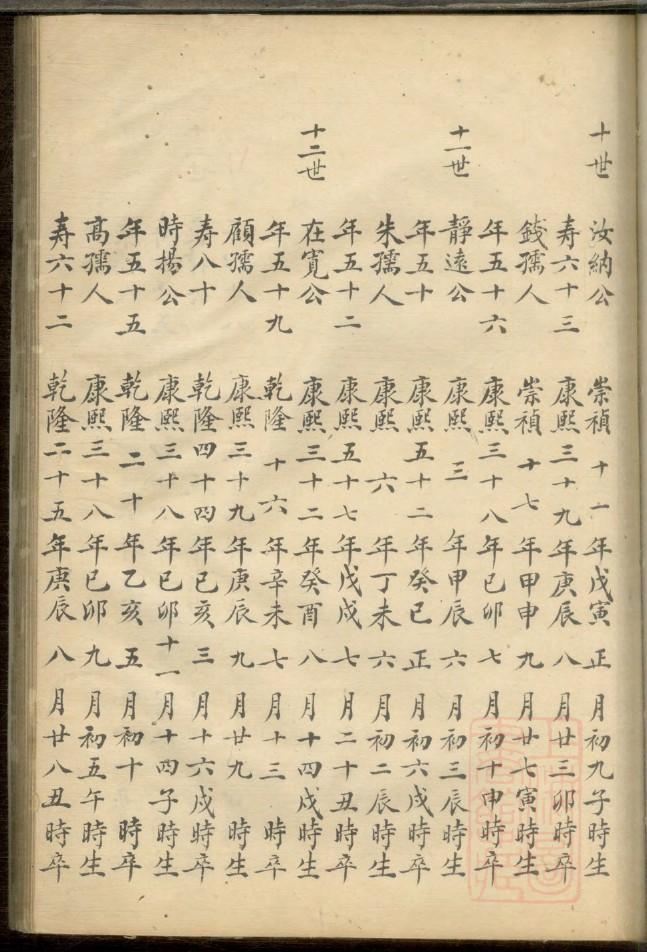 十世 汝納公 崇禎十一年戊寅正月初九子時生
寿六十三 康熙三十九年庚辰八月廿三卯時卒
錢孺人 崇禎十七年甲申九月廿七寅時生
年五十六 康熙三十八年己卯七月初十申時卒
十一世 靜遠公 康熙三年甲辰六月初三辰時生
年五十 康熙五十二年癸巳正月初六戌時卒
朱孺人 康熙六年丁未六月初二辰時生
年五十二 康熙五十七年戊戌七月二十丑時卒
十二世 在寬公 康熙三十二年癸酉八月十四戌時生
年五十九 乾隆十六年辛未七月十三時卒
顧孺人 康熙三十九年庚辰九月廿九時生
寿八十 乾隆四十四年己亥三月十六戌時卒
時揚公 康熙三十八年己卯十一月十四子時生
年五十五 乾隆二十年乙亥五月初十時卒
高孺人 康熙三十八年己卯九月初五午時生
寿六十二 乾隆二十五年庚辰八月廿八丑時卒